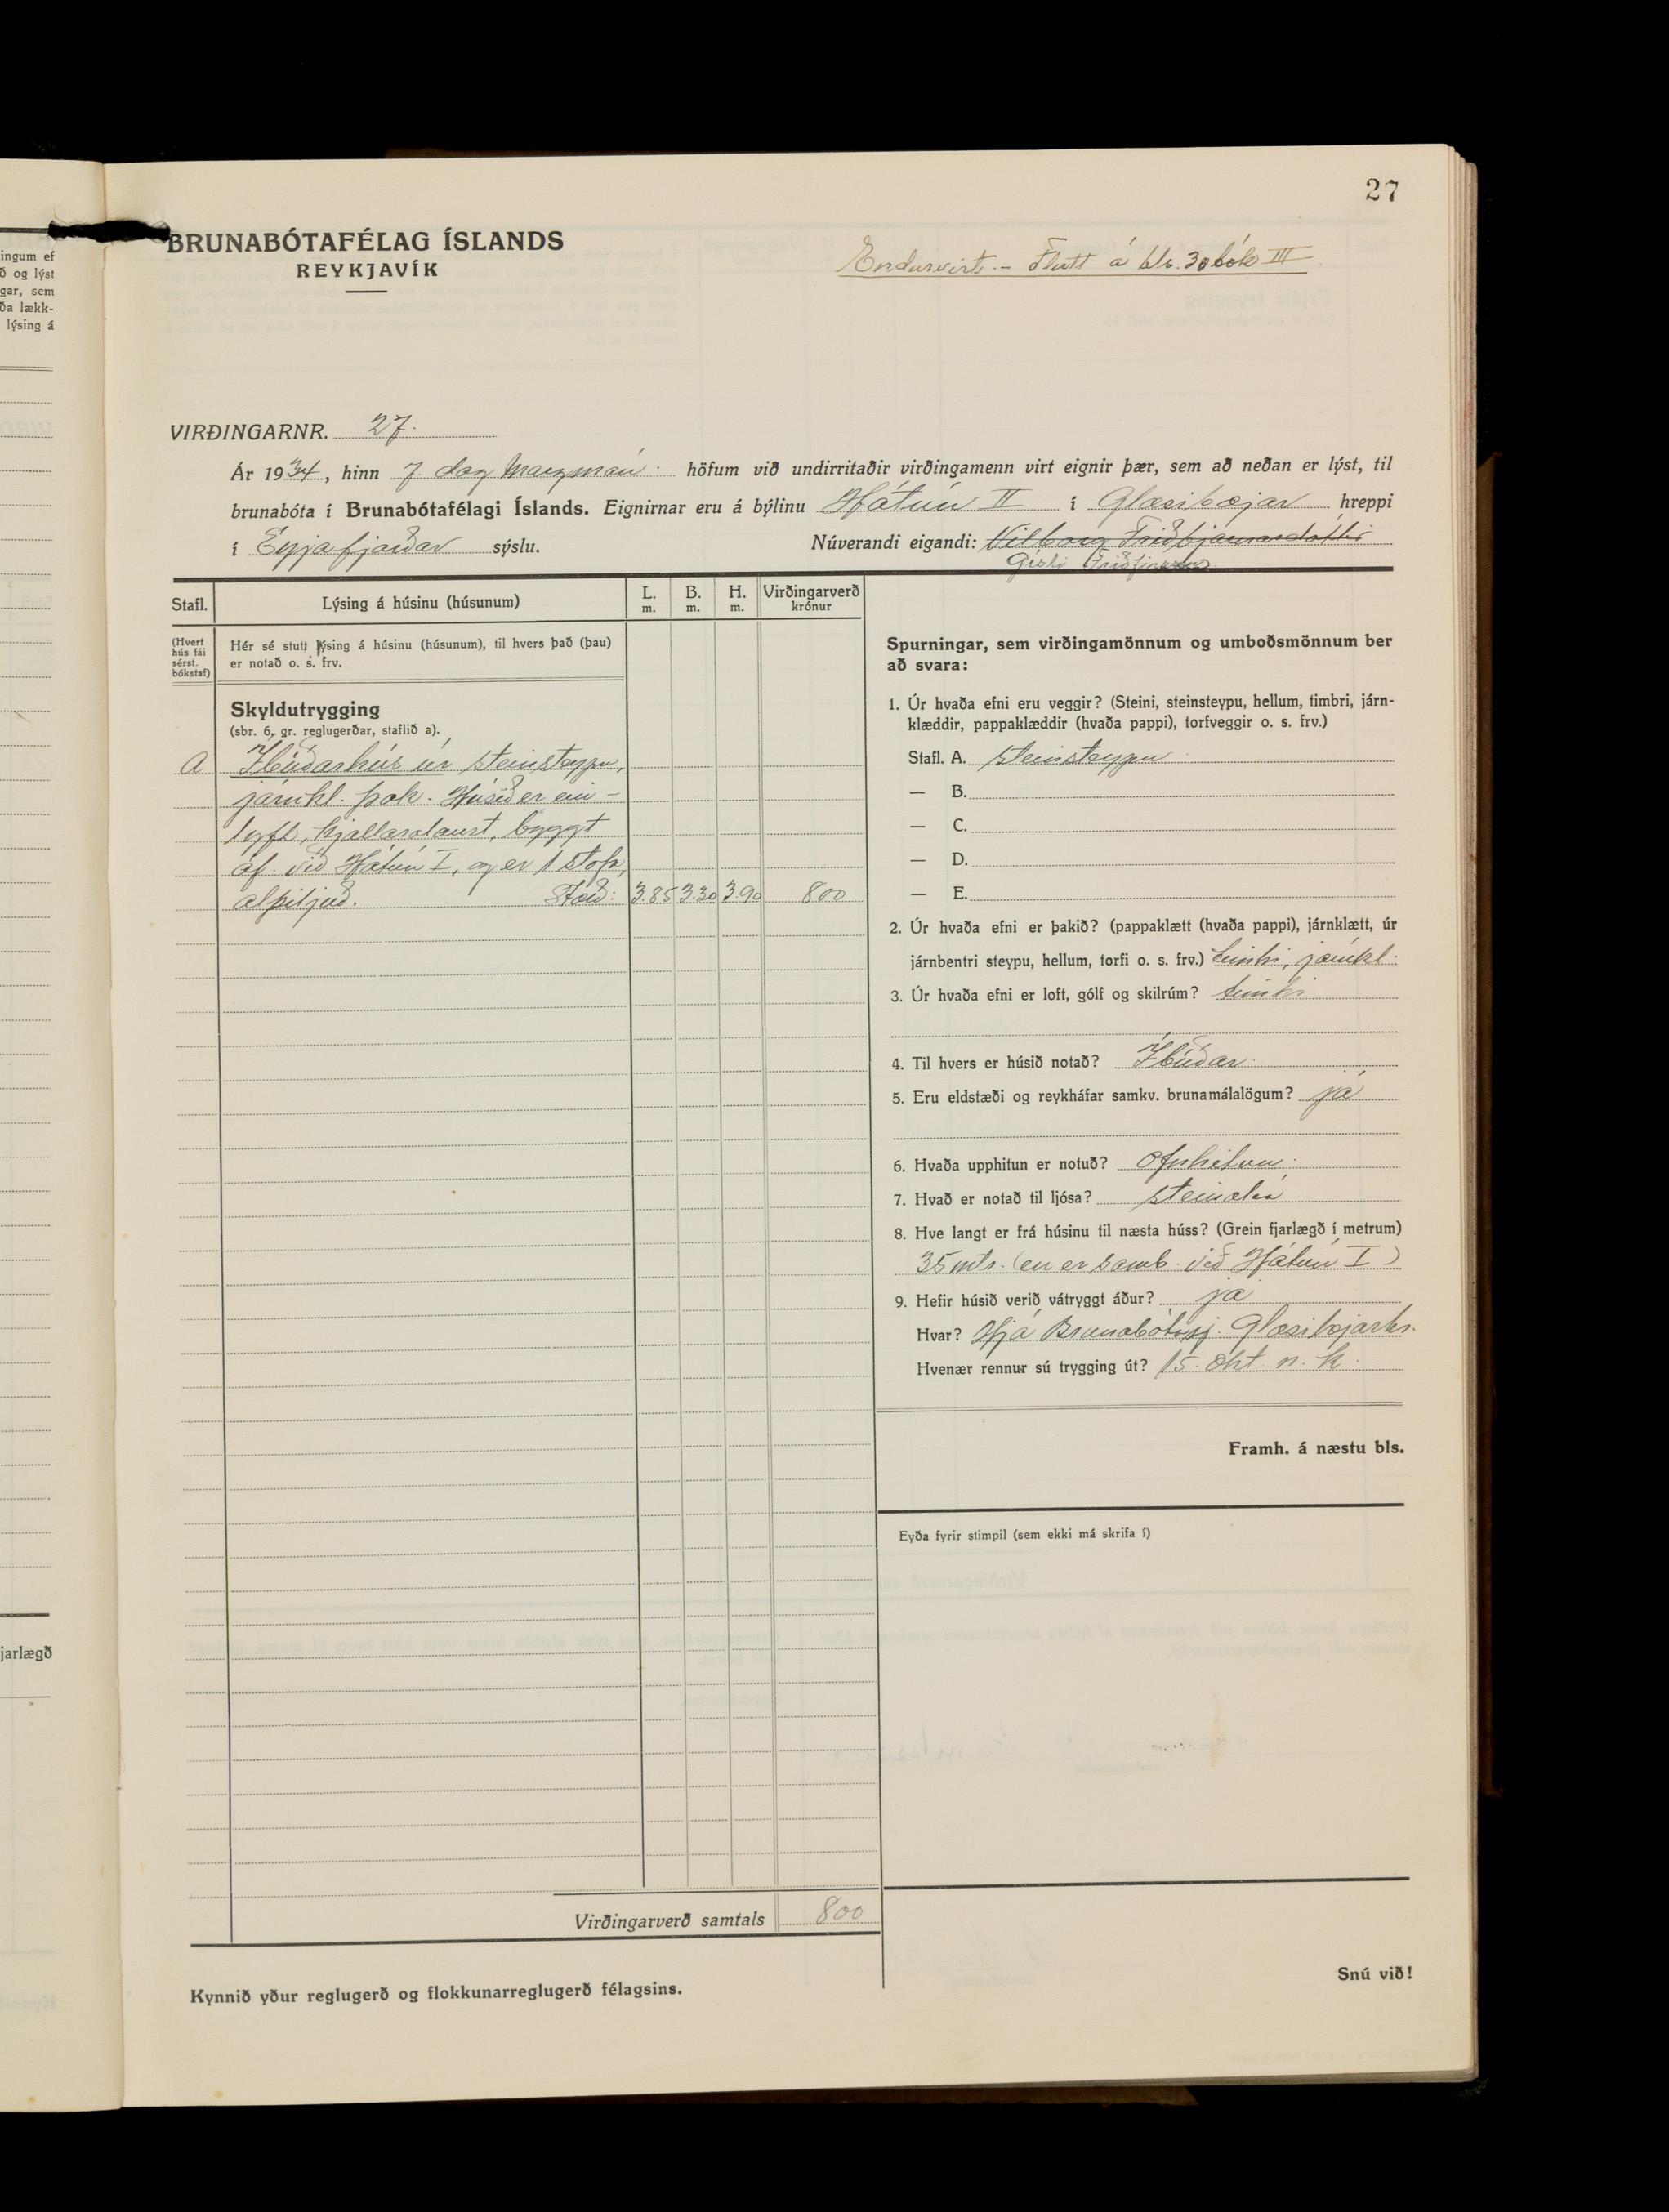 27
BRUNABÓTAFÉLAG ÍSLANDS
REYKJAVÍK
Endurvirt. - Flutt á bls. 30 bók III
VIRÐINGARNR. 27.
Ár 1934, hinn 7. dag marzmán. höfum við undirritaðir virðingamenn virt eignir þær, sem að neðan er lýst, til
brunabóta í Brunabótafélagi Íslands. Eignirnar eru á býlinu Hátún II í Glæsibæjar hreppi
í Eyjafjarðar sýslu. Núverandi eigandi: Vilborg Friðbjarnardóttir
Gísli
Stafl. Lýsing á húsinu (húsunum) L. m. B. m. H. m. Virðingarverð krónur
(Hvert hús fái sérst. bókstaf)
Hér sé stutt lýsing á húsinu (húsunum), til hvers það (þau)
er notað o. s. frv.
Skyldutrygging
(sbr. 6. gr. reglugerðar, staflið a).
a Íbúðarhús úr steinsteypu,
járnkl. þak. Húsið er ein-
lyft, kjallaralaust, byggt
áf. við Hátún I, og er 1 stofa,
alþiljuð. Stærð: 3.85 3.30 3.90 800
Virðingarverð samtals 800
Kynnið yður reglugerð og flokkunarreglugerð félagsins.
Spurningar, sem virðingamönnum og umboðsmönnum ber
að svara:
1. Úr hvaða efni eru veggir? (Steini, steinsteypu, hellum, timbri, járn-
klæddir, pappaklæddir (hvaða pappi), torfveggir o. s. frv.)
Stafl. A. steinsteypu
— B.
— C.
— D.
— E.
2. Úr hvaða efni er þakið? (pappaklætt (hvaða pappi), járnklætt, úr
járnbentri steypu, hellum, torfi o. s. frv.) timbri, járnkl.
3. Úr hvaða efni er loft, gólf og skilrúm? timbri
4. Til hvers er húsið notað? Íbúðar
5. Eru eldstæði og reykháfar samkv. brunamálalögum? já
6. Hvaða upphitun er notuð? Ofnhitun
7. Hvað er notað til ljósa? steinolía
8. Hve langt er frá húsinu til næsta húss? (Grein fjarlægð í metrum)
35 mtr. (en er samb. við Hátún I)
9. Hefir húsið verið vátryggt áður? já
Hvar? Hjá Brunabótasj. Glæsibæjarhr.
Hvenær rennur sú trygging út? 15. okt. n. k.
Framh. á næstu bls.
Eyða fyrir stimpil (sem ekki má skrifa í)
Snú við!
ingum ef
ð og lýst
gar, sem
ða lækk-
lýsing á
jarlægð